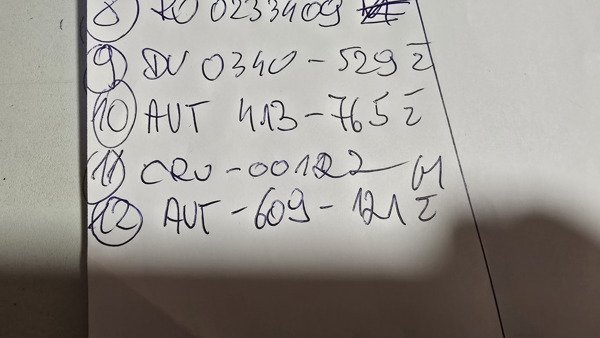 8 PO 0233409
9 DU 0340-529 Z
10 AUT 413-765 Z
11 CRU-00122 M
12 AUT-609-121 Z